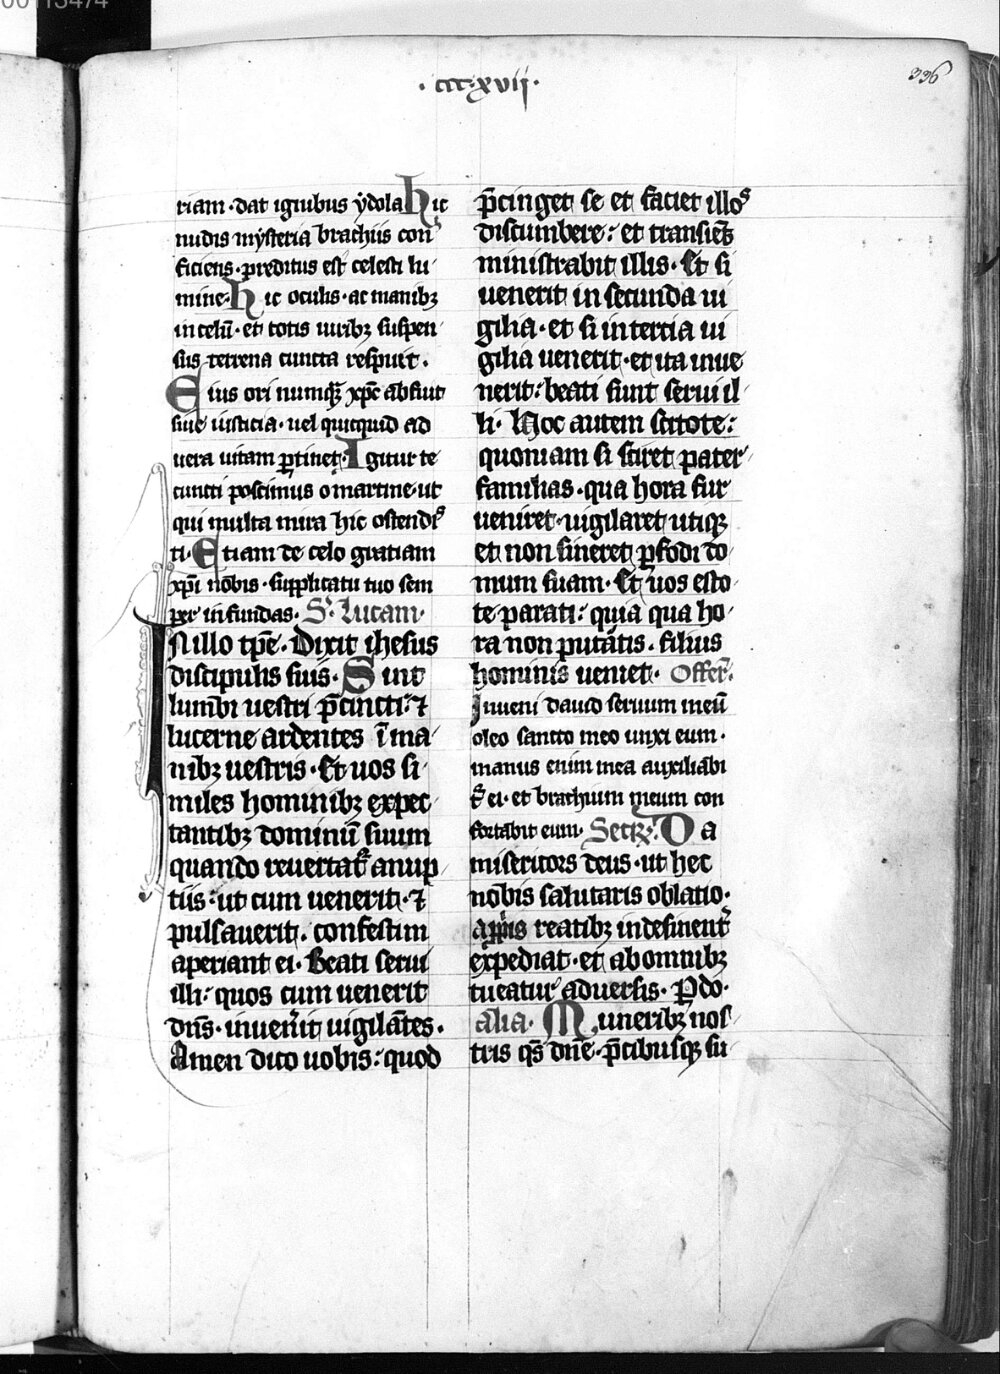 00113474
·ccc·xvii·
336
riam·dat ignibus ẏdola hic
nudis mẏsteria brachiis con
ficiens·preditus est celesti lu
mine·hic oculis·ac manibꝫ
in celū·et totis uiribꝫ suspen
sus·terrena cuncta respuit.
Eius ori numqꝫ xp̄c abfuit
siue iusticia·uel quicquid ad
uera uitam ꝑtinet·Igitur te
cuncti poscimus o martine·ut
qui multa mira hic ostendis
ti·Etiam de celo gratiam
xp̄i nobis·supplicatu tuo sem
per infundas. S. Lucam·
In illo tp̄e·Dixit ihesus
discipulis suis·Sint
lumbi uestri p̄cincti:⁊
lucerne ardentes ī ma
nibꝫ uestris·Et uos si
miles hominibꝫ expec
tantibꝫ dominū suum
quando reuertat᷑ a nup
tiis:ut cum uenerit·⁊
pulsauerit. confestim
aperiant ei·Beati serui
illi: quos cum uenerit
dn̄s·inuen̓it uigilātes.
Amen dico uobis: quod
p̄cinget se et faciet illos
discumbere: et transiens
ministrabit illis·Et si
uenerit in secunda ui
gilia·et si in tercia ui
gilia uenerit·et ita inue
nerit: beati sunt serui il
li·Hoc autem scitote:
quoniam si sciret pater
familias·qua hora fur
ueniret·uigilaret utiqꝫ
et non sineret ꝑfodi do
mum suam·Et uos esto
te parati: quia qua ho
ra non putatis·filius
hominis ueniet· Offer̄.
Inueni dauid seruum meū
oleo sancto meo unxi eum·
manus enim mea auxiliabi
t᷑ ei·et brachium meum con
fortabit eum· Secr̄. Da
misericors deus·ut hec
nobis salutaris oblatio·
a ꝓpriis reatibꝫ indesinent̓
expediat·et ab omnibꝫ
tueatur aduersis·P do·
alia· Muneribꝫ nos
tris qs̄ dn̄e·p̄cibusqꝫ su